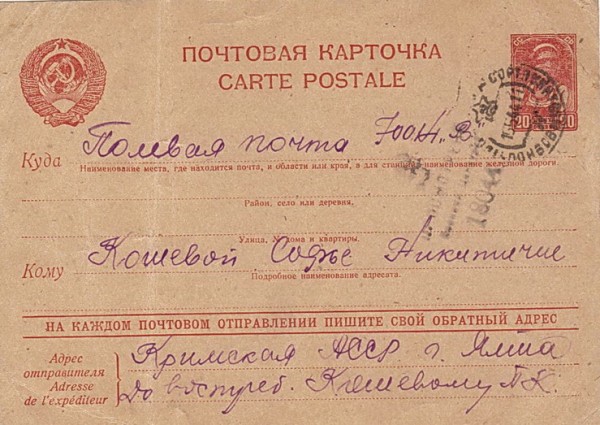 ПОЧТОВАЯ КАРТОЧКА
CARTE POSTALE
20
Куда Полевая почта
Наименование места, где находится почта, и области или края, а для станции наименование железной дороги.
Район, село или деревня.
Улица, № дома и квартиры.
Кому Кошевой Софье Никитичне
Подробное наименование адресата.
НА КАЖДОМ ПОЧТОВОМ ОТПРАВЛЕНИИ ПИШИТЕ СВОЙ ОБРАТНЫЙ АДРЕС
Адрес отправителя
Adresse de l'expéditeur
Кримская АССР г. Ялта
До востреб. Кошевому П.К.